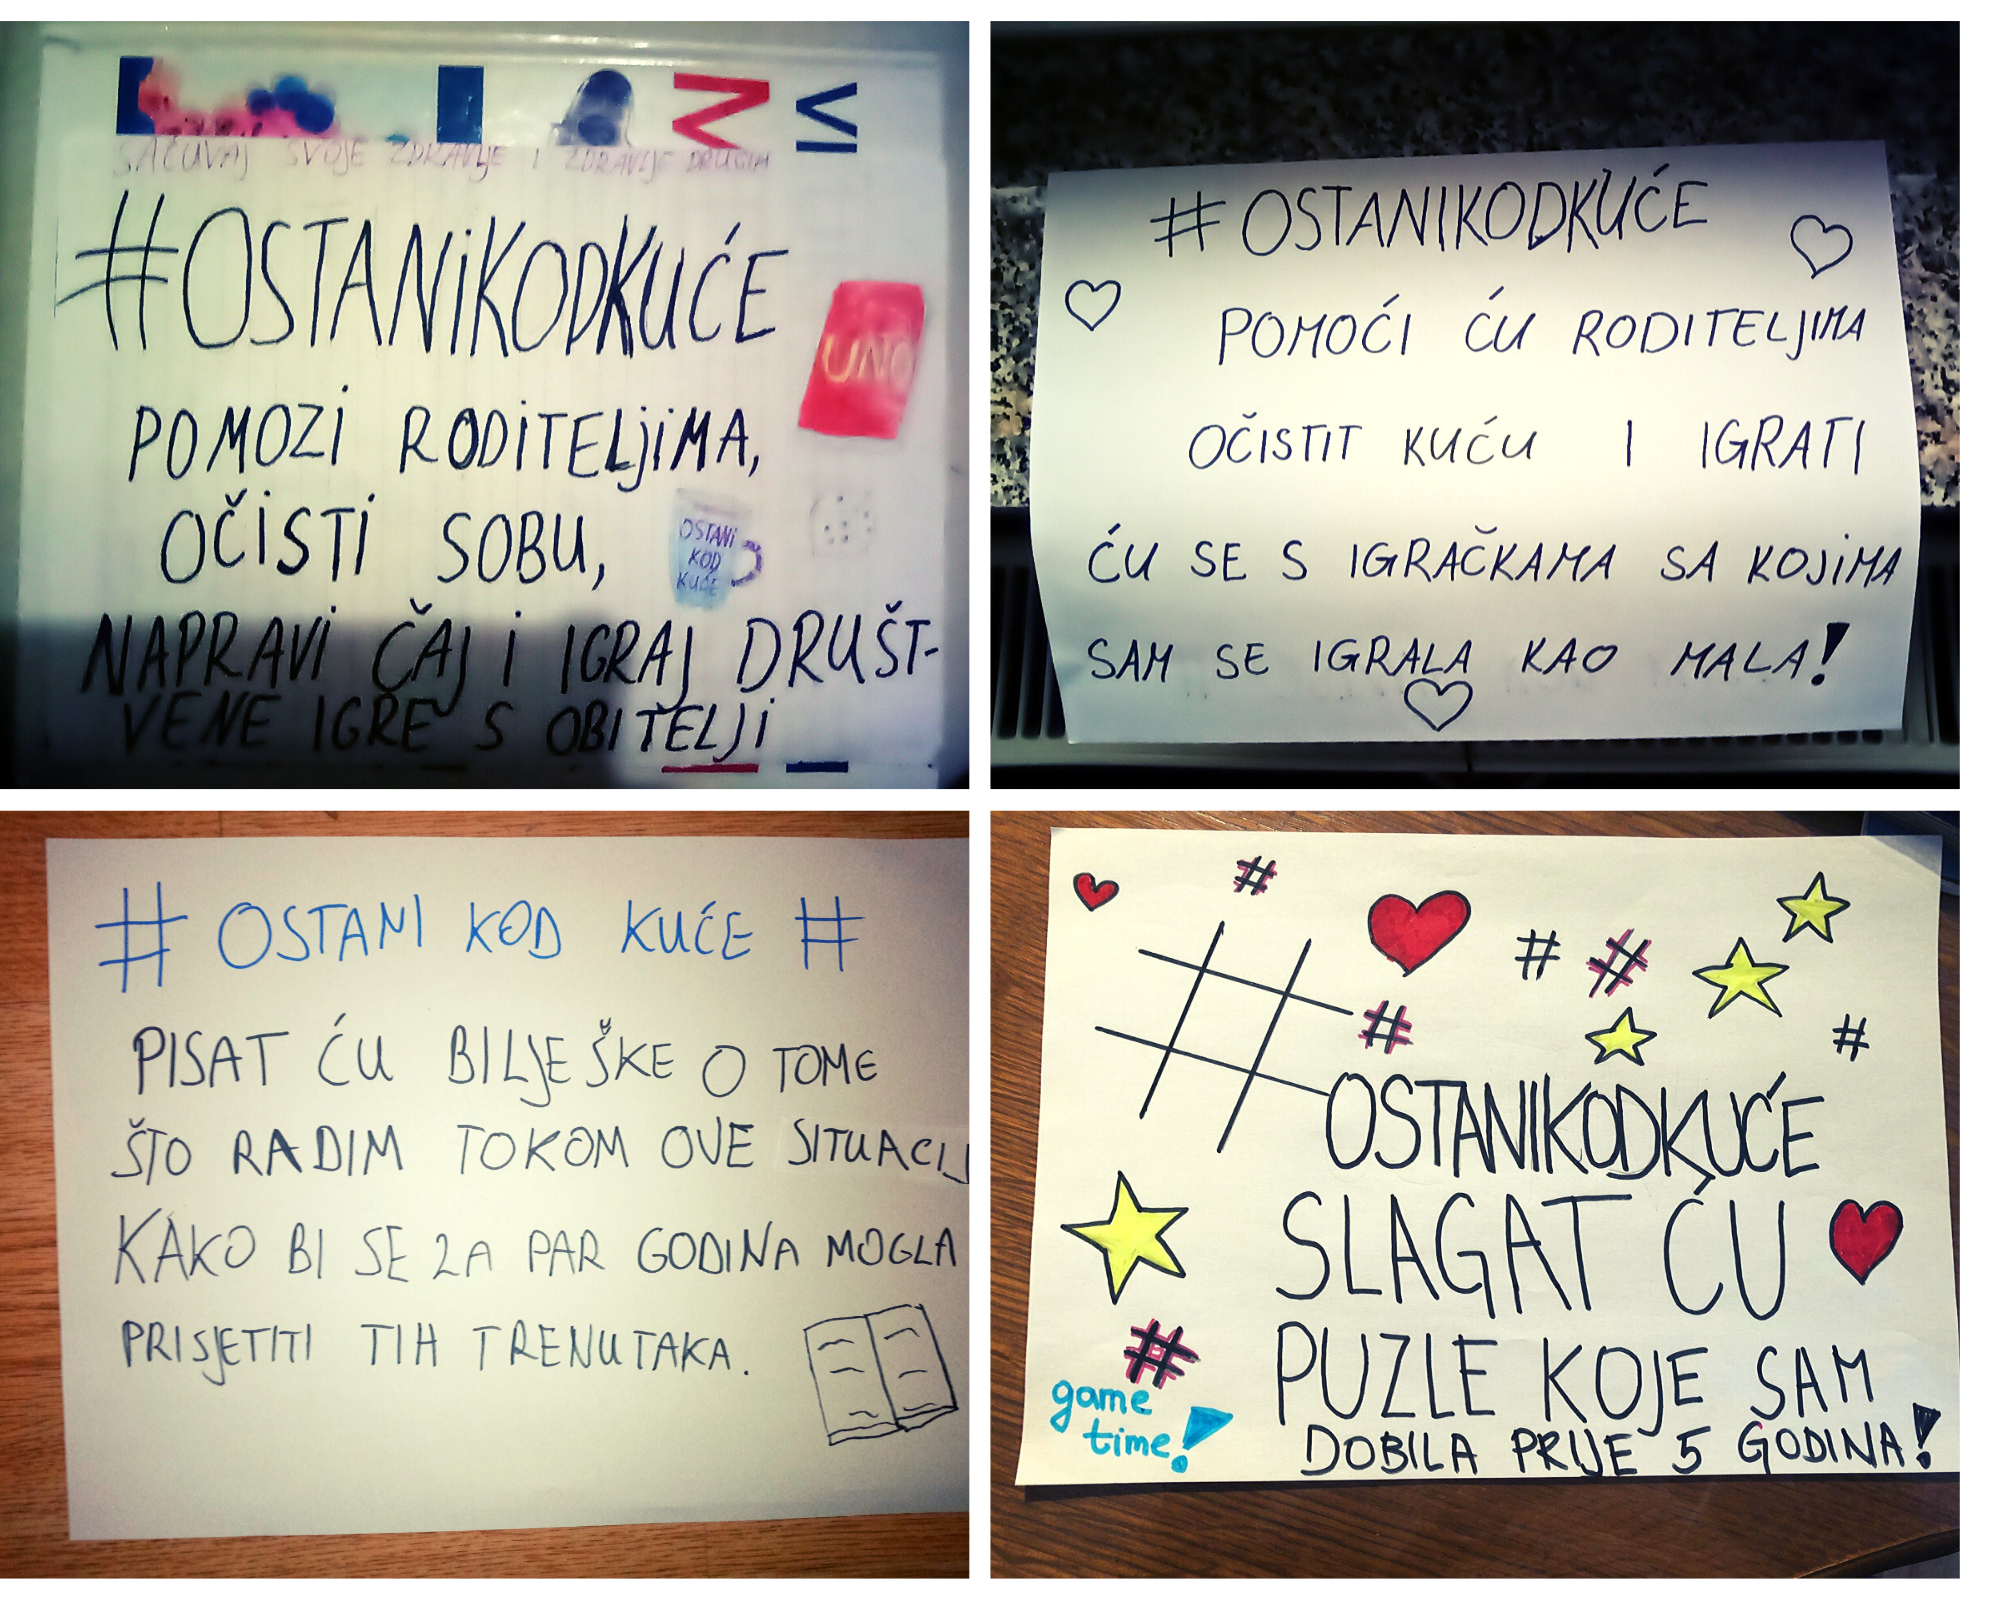 SAČUVAJ SVOJE ZDRAVLJE I ZDRAVLJE DRUGIH
#OSTANIKODKUĆE
UNO
POMOZI RODITELJIMA,
OČISTI SOBU,
OSTANI
KOD
KUĆE
NAPRAVI ČAJ I IGRAJ DRUŠT-
VENE IGRE S OBITELJI
#OSTANIKODKUĆE
POMOĆI ĆU RODITELJIMA
OČISTIT KUĆU I IGRATI
ĆU SE S IGRAČKAMA SA KOJIMA
SAM SE IGRALA KAO MALA!
# OSTANI KOD KUĆE #
PISAT ĆU BILJEŠKE O TOME
ŠTO RADIM TOKOM OVE SITUACIJ
KAKO BI SE ZA PAR GODINA MOGLA
PRISJETITI TIH TRENUTAKA.
# # # # #
#OSTANIKODKUĆE
SLAGAT ĆU
PUZLE KOJE SAM
DOBILA PRIJE 5 GODINA!
#
game
time!